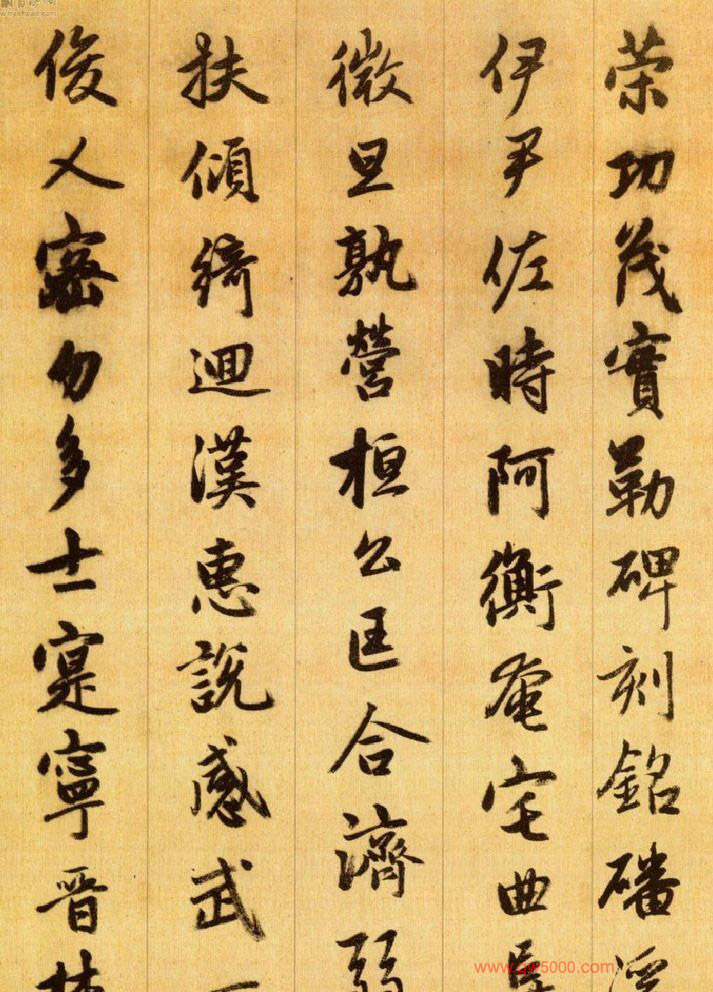 荣功茂實勒碑刻銘磻溪
伊尹佐時阿衡奄宅曲阜
微旦孰營桓公匡合濟弱
扶傾綺迴漢惠說感武
俊乂密勿多士寔寧晋